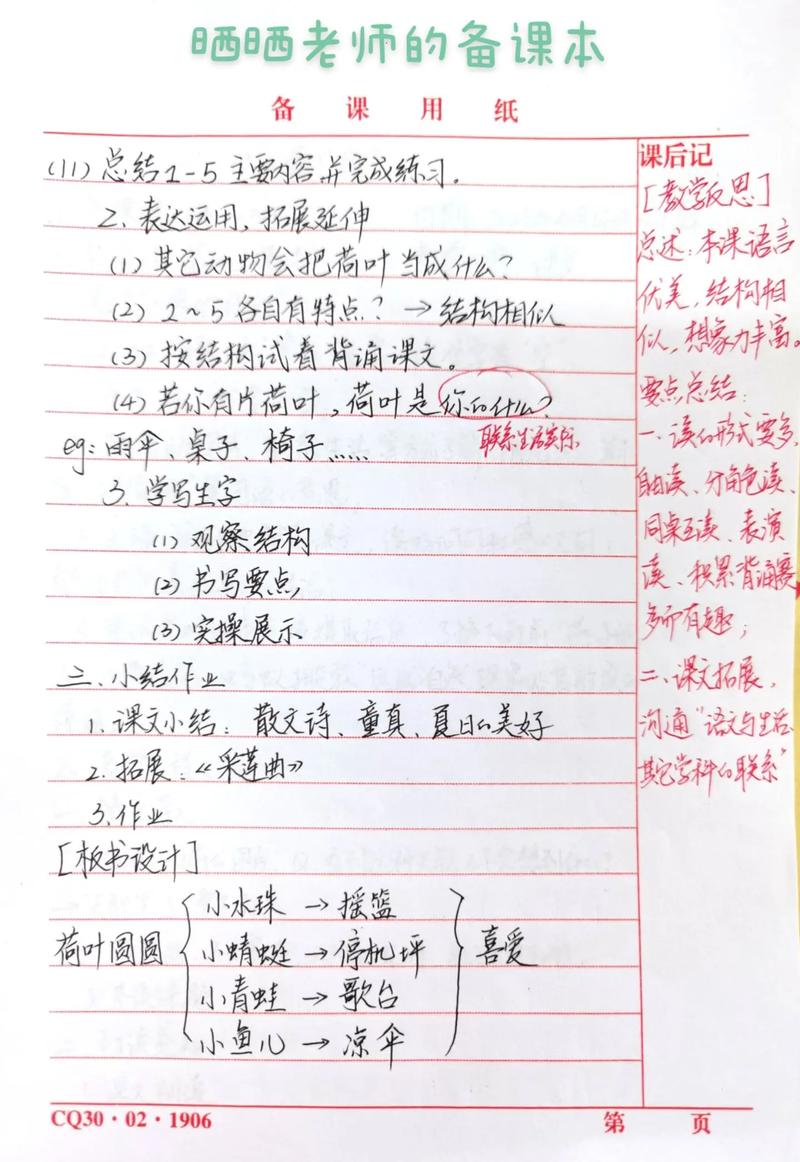 晒晒老师的备课本
备 课 用 纸
(11) 总结1-5主要内容并完成练习。
2. 表达运用, 拓展延伸
(1) 其它动物会把荷叶当成什么?
(2) 2~5各自有特点? → 结构相似
(3) 按结构试着背诵课文。
(4) 若你有片荷叶, 荷叶是你的什么?
联系生活实际
eg: 雨伞、桌子、椅子……
3. 学写生字
(1) 观察结构
(2) 书写要点,
(3) 实操展示
三、小结作业
1. 课文小结: 散文诗、童真、夏日的美好
2. 拓展:《采莲曲》
3. 作业
[板书设计]
荷叶圆圆
小水珠 → 摇篮
小蜻蜓 → 停机坪
小青蛙 → 歌台
小鱼儿 → 凉伞
喜爱
课后记
[教学反思]
总述: 本课语言
优美, 结构相
似, 想象力丰富。
要点总结:
一、读的形式要多,
自由读、分角色读、
同桌互读、表演
读、积累背诵赛
多而有趣;
二、课文拓展,
沟通“语文与生活、
其它学科的联系”
CQ30·02·1906
第 页